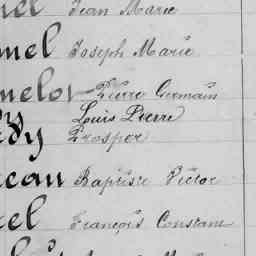 nel Jean Marie
mel Joseph Marie
melot Pierre Germain
Louis Pierre
dy Prosper
eau Baptiste Victor
el François Constant